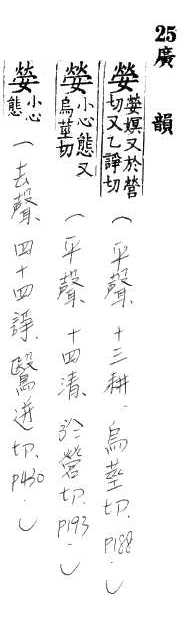 25 廣韻
嫈 嫈嫇又於營切又乙諍切 （平聲、十三耕．烏莖切．P188．）
嫈 小心態又烏莖切 （平聲、十四清、於營切．P193．）
嫈 小心態 （去聲、四十四諍．鷖迸切．P430．）